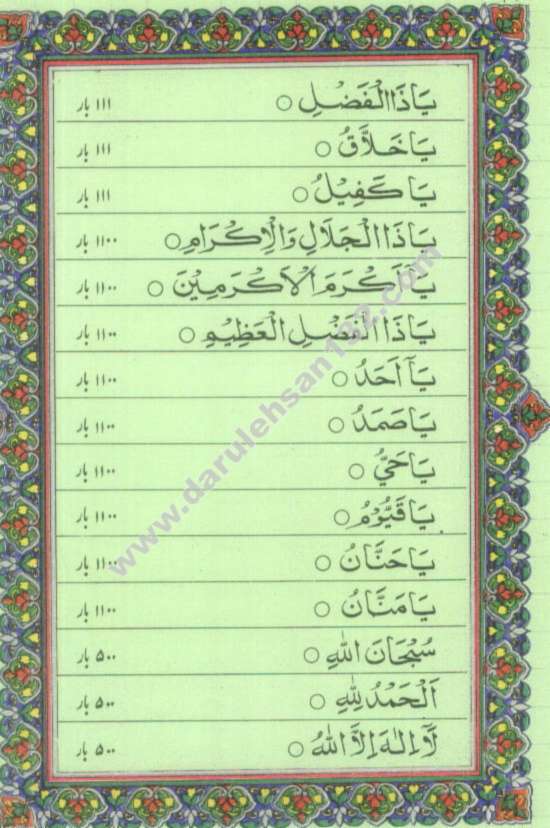 يَا ذَا الْفَضْلِ ○ ۱۱۱ بار
يَا خَلَّاقُ ○ ۱۱۱ بار
يَا كَفِيْلُ ○ ۱۱۱ بار
يَا ذَا الْجَلَالِ وَالْاِكْرَامِ ○ ۱۱۰۰ بار
يَا اَكْرَمَ الْاَكْرَمِيْنَ ○ ۱۱۰۰ بار
يَا ذَا الْفَضْلِ الْعَظِيْمِ ○ ۱۱۰۰ بار
يَآ اَحَدُ ○ ۱۱۰۰ بار
يَا صَمَدُ ○ ۱۱۰۰ بار
يَا حَيُّ ○ ۱۱۰۰ بار
يَا قَيُّوْمُ ○ ۱۱۰۰ بار
يَا حَنَّانُ ○ ۱۱۰۰ بار
يَا مَنَّانُ ○ ۱۱۰۰ بار
سُبْحَانَ اللهِ ○ ۵۰۰ بار
اَلْحَمْدُ لِلّٰهِ ○ ۵۰۰ بار
لَآ اِلٰهَ اِلَّا اللهُ ○ ۵۰۰ بار
www.darulehsan132.com